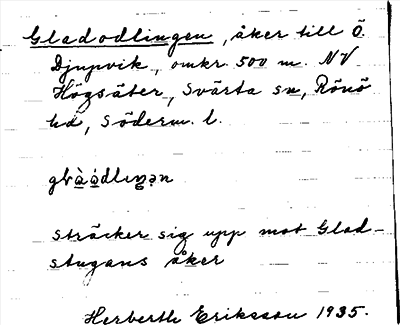 Gladodlingen, åker till Ö.
Djupvik, omkr. 500 m. NV
Högsäter, Svärta sn, Rönö
hd, Söderm. l.
sträcker sig upp mot Glad-
stugans åker
Herberth Eriksson 1935.